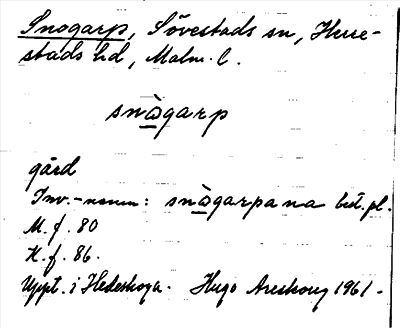 Snogarp, Sövestads sn, Herre-
stads hd, Malm. l.
snògarp
gård
Inv.-namn: snògarpana best. pl.
M. f. 80
K. f. 86.
Uppt. i Hedeskoga. Hugo Areskoug 1961.